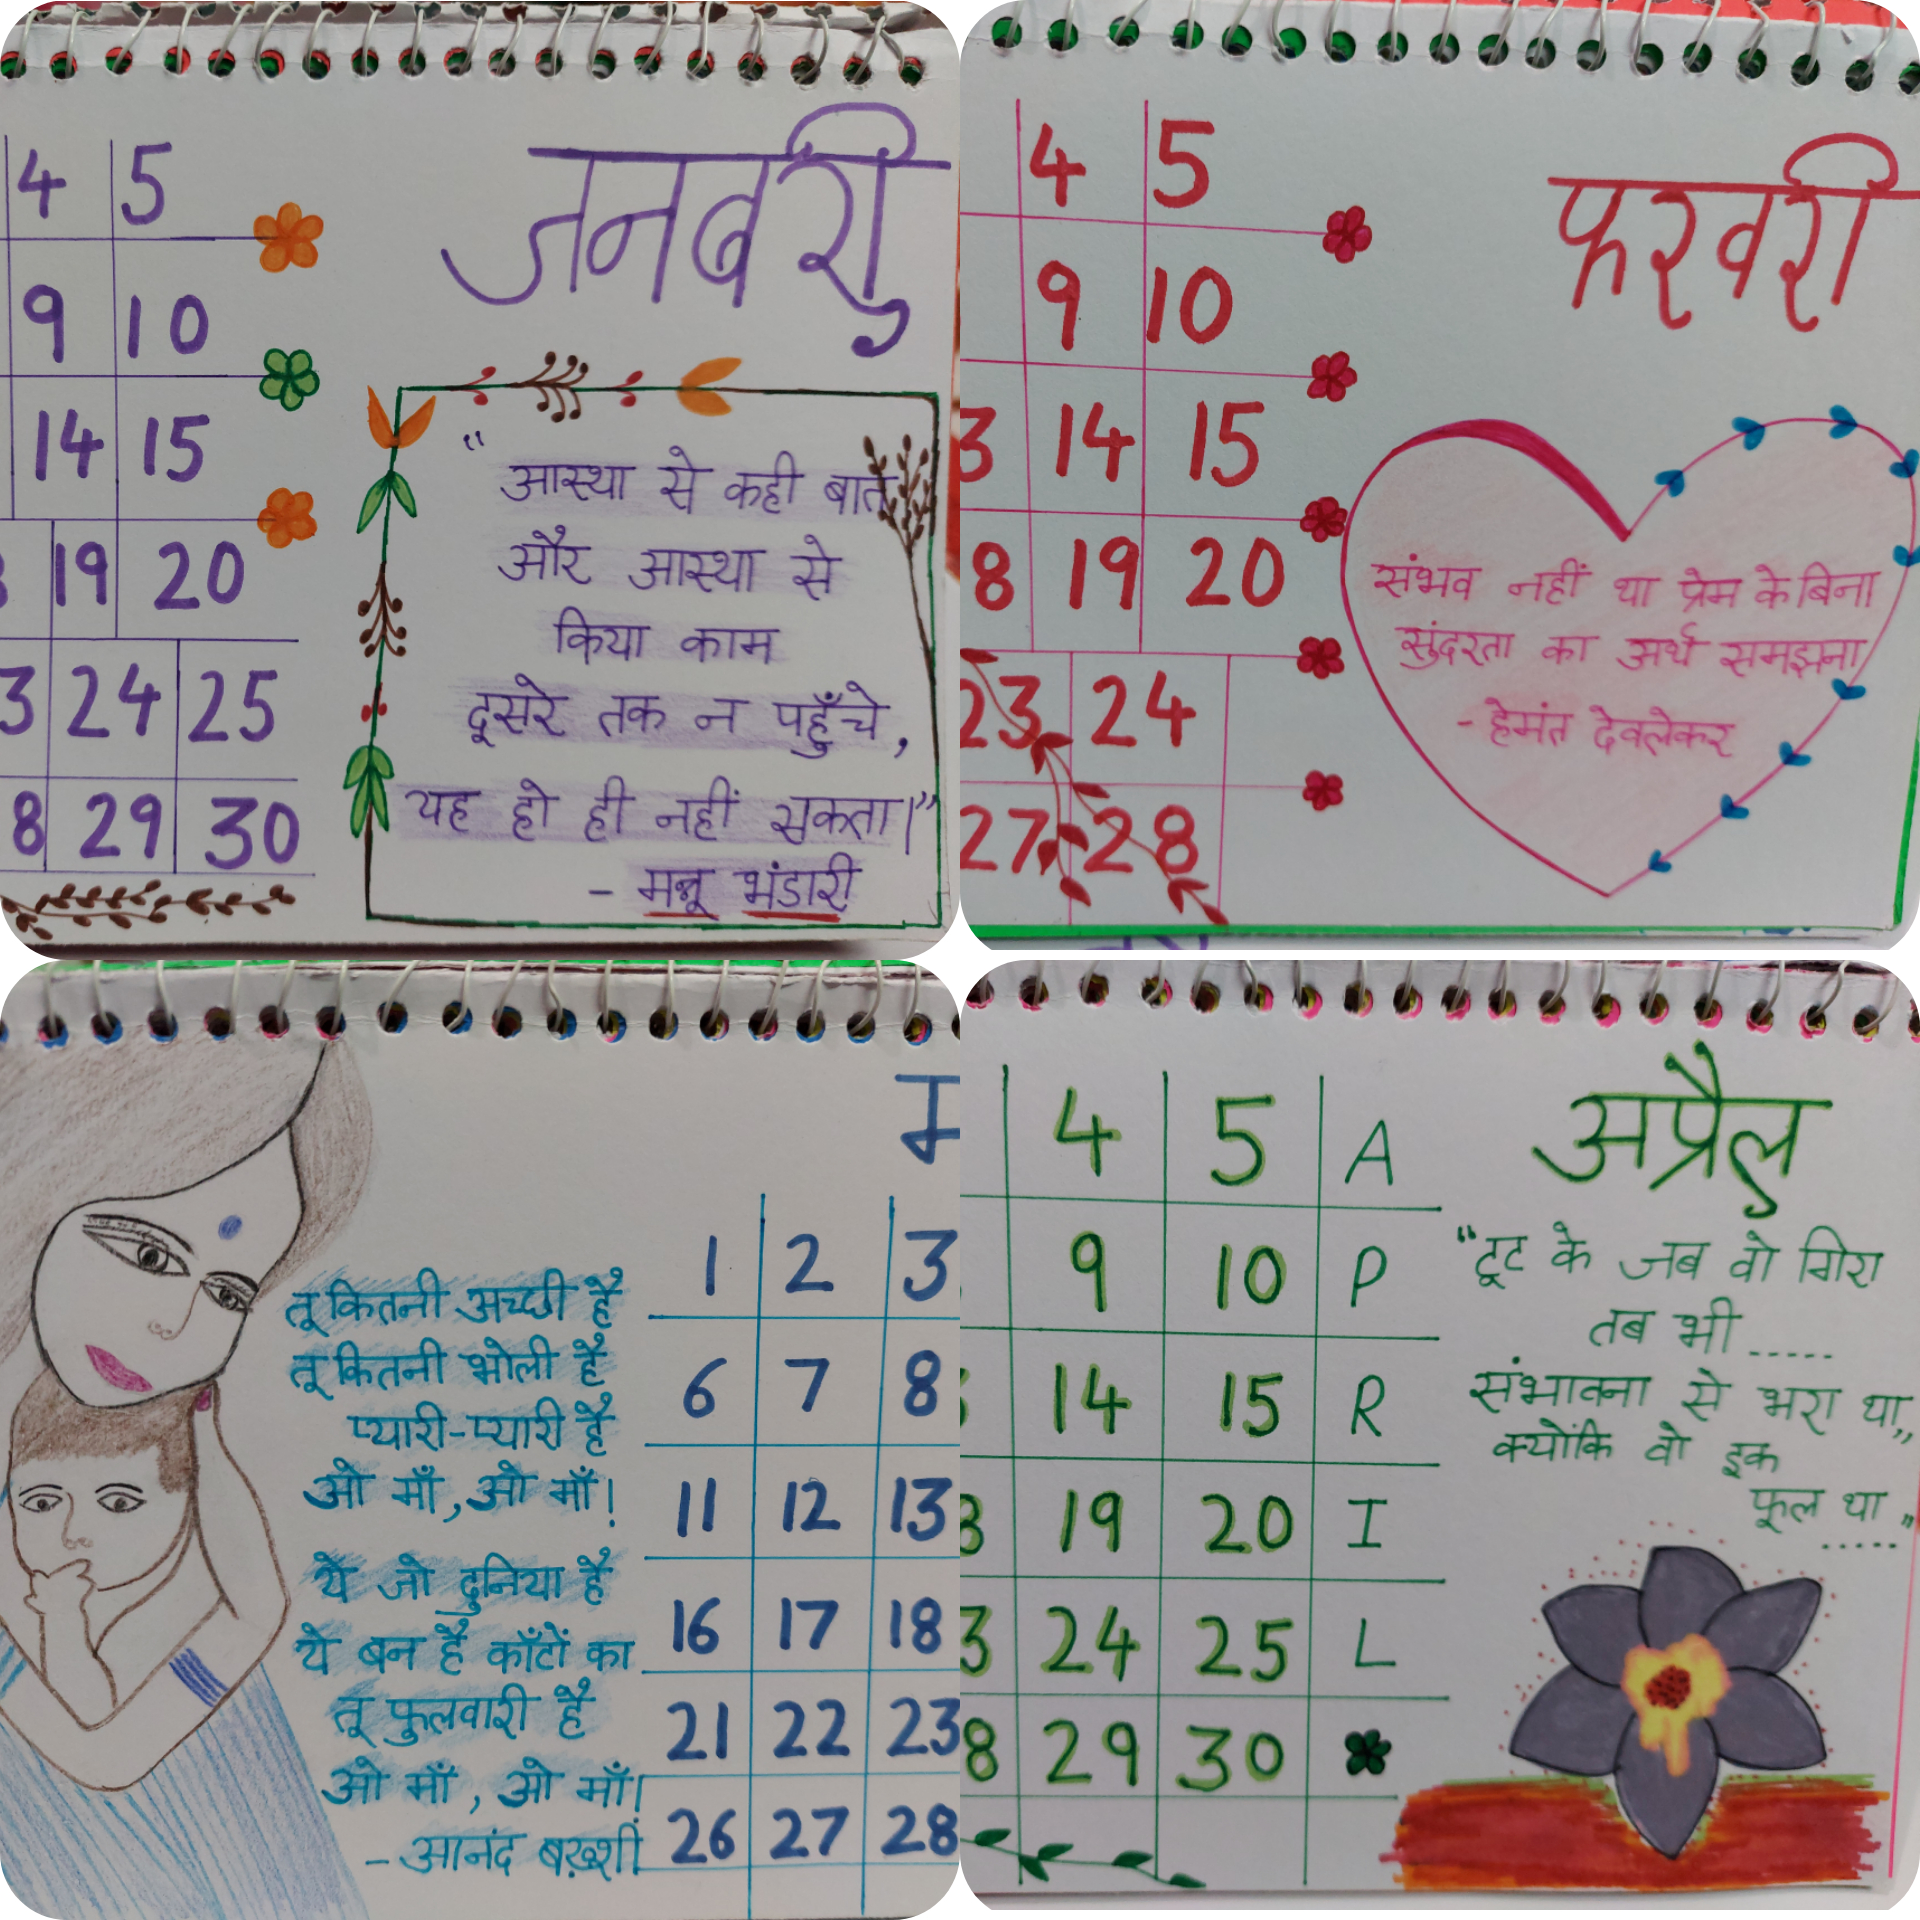 जनवरी
4 5
9 10
14 15
19 20
3 24 25
8 29 30
"आस्था से कही बात
और आस्था से
किया काम
दूसरे तक न पहुँचे,
यह हो ही नहीं सकता।"
- मन्नू भंडारी
फरवरी
4 5
9 10
3 14 15
8 19 20
23 24
27 28
संभव नहीं था प्रेम के बिना
सुंदरता का अर्थ समझना
- हेमंत देवलेकर
तू कितनी अच्छी है
तू कितनी भोली है
प्यारी-प्यारी है
ओ माँ, ओ माँ!
ये जो दुनिया है
ये बन है काँटों का
तू फुलवारी है
ओ माँ, ओ माँ!
- आनंद बख़्शी
1 2 3
6 7 8
11 12 13
16 17 18
21 22 23
26 27 28
अप्रैल
4 5 A
9 10 P
14 15 R
3 19 20 I
3 24 25 L
8 29 30
"टूट के जब वो गिरा
तब भी .....
संभावना से भरा था,,
क्योंकि वो इक
फूल था"
.....